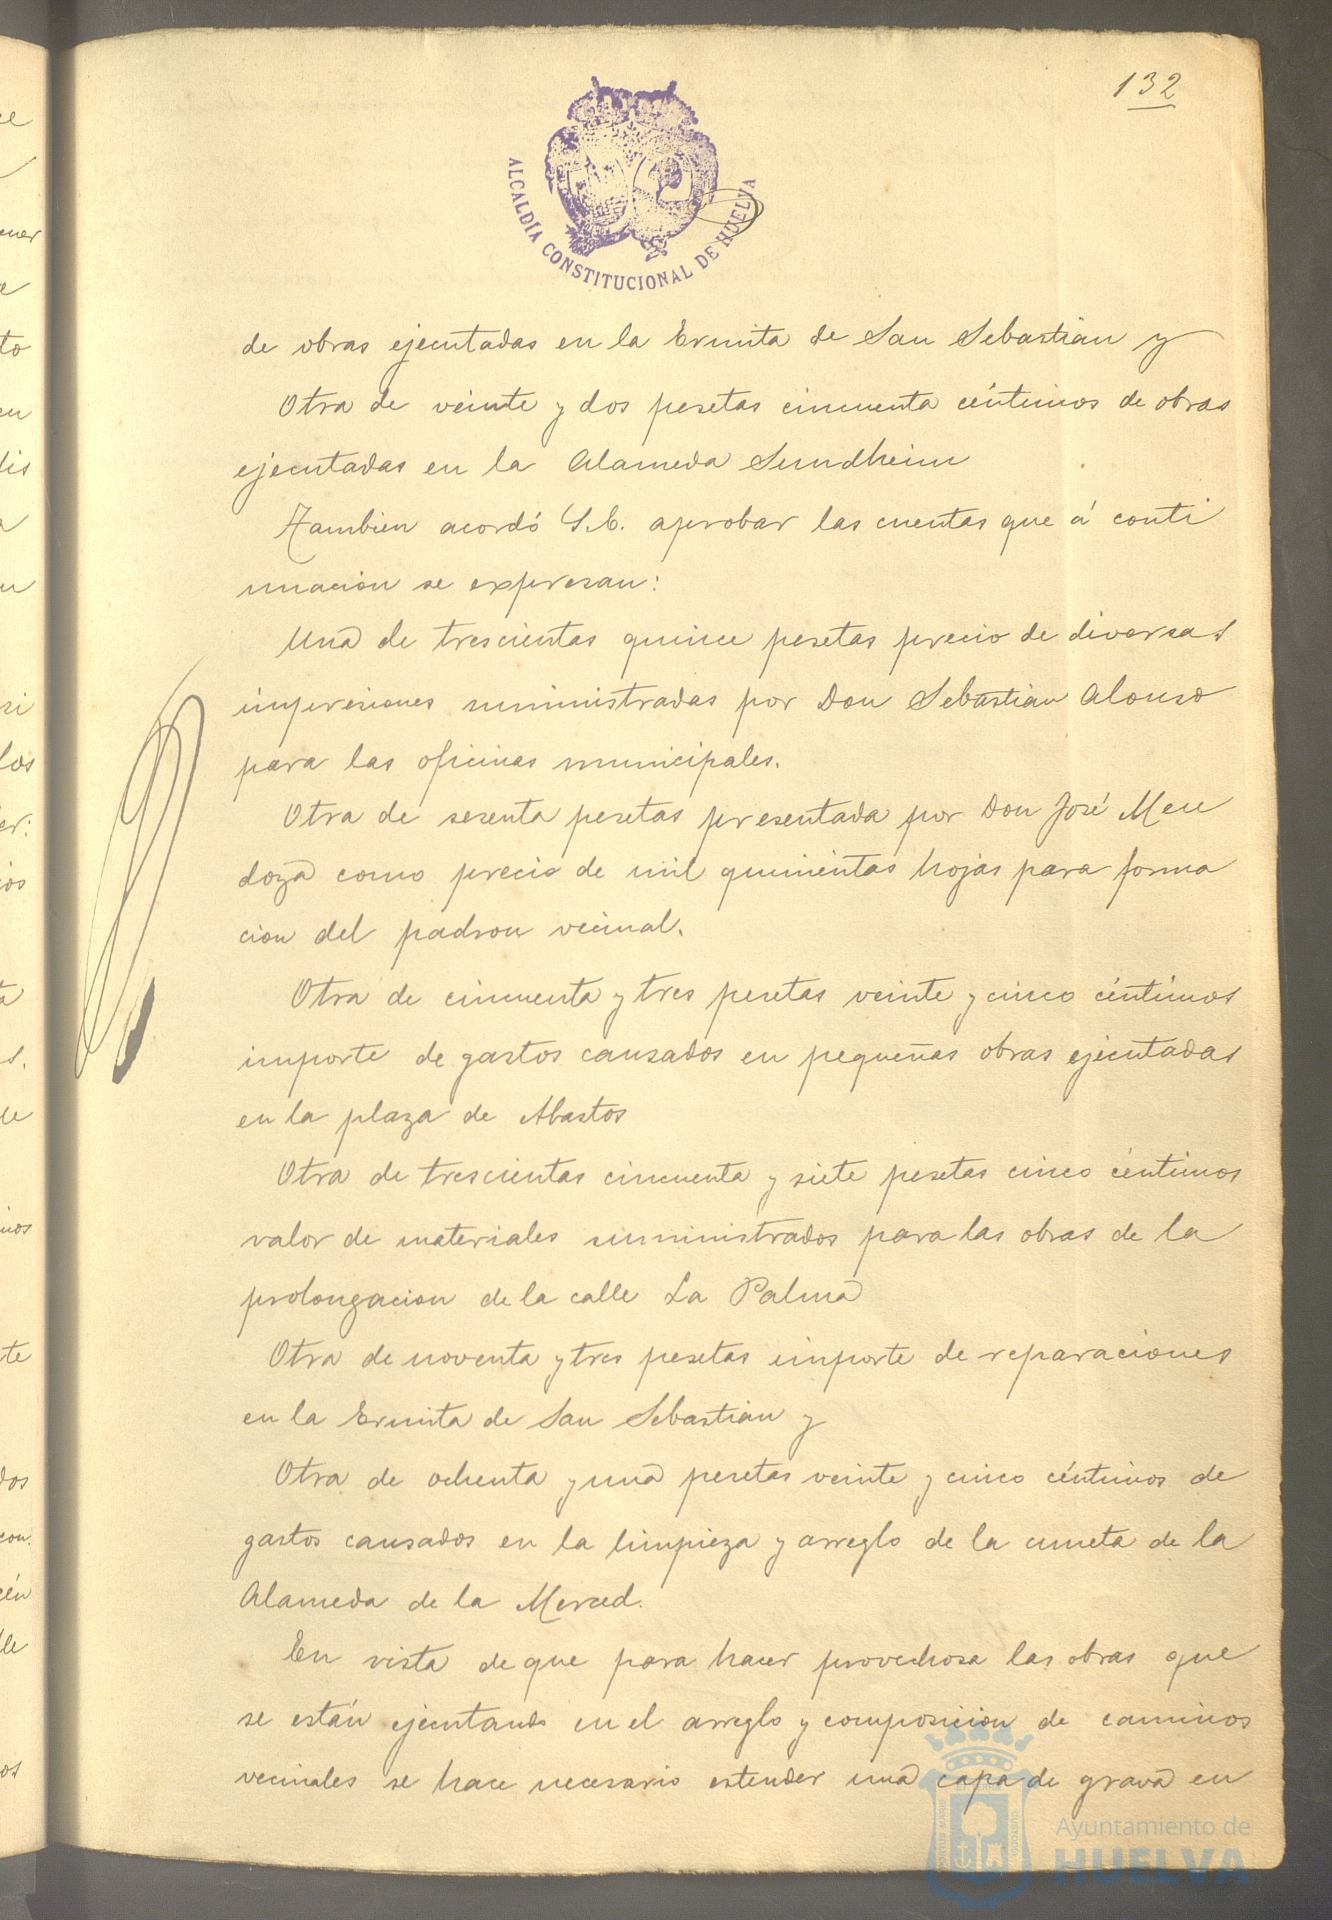 132
ALCALDÍA CONSTITUCIONAL DE HUELVA
de obras ejecutadas en la Ermita de San Sebastián y
Otra de veinte y dos pesetas cincuenta céntimos de obras
ejecutadas en la Alameda Sundheim
Tambien acordó S.E. aprobar las cuentas que á conti
nuacion se expresan:
Una de trescientas quince pesetas precio de diversas
impresiones suministradas por Don Sebastian Alonso
para las oficinas municipales.
Otra de sesenta pesetas presentada por Don José Men
doza como precio de mil quinientas hojas para forma
cion del padron vecinal.
Otra de cincuenta y tres pesetas veinte y cinco céntimos
importe de gastos causados en pequeñas obras ejecutadas
en la plaza de Abastos
Otra de trescientas cincuenta y siete pesetas cinco céntimos
valor de materiales suministrados para las obras de la
prolongacion de la calle La Palma
Otra de noventa y tres pesetas importe de reparaciones
en la Ermita de San Sebastian y
Otra de ochenta y una pesetas veinte y cinco céntimos de
gastos causados en la limpieza y arreglo de la cuneta de la
Alameda de la Merced.
En vista de que para hacer provechosa las obras que
se están ejecutando en el arreglo y composicion de caminos
vecinales se hace necesario estender una capa de grava en
Ayuntamiento de
HUELVA